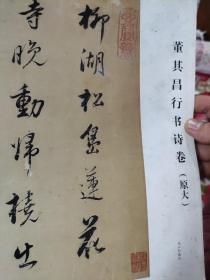 董其昌行书诗卷
（原大）
柳湖松岛莲花
寺晚动归桡出